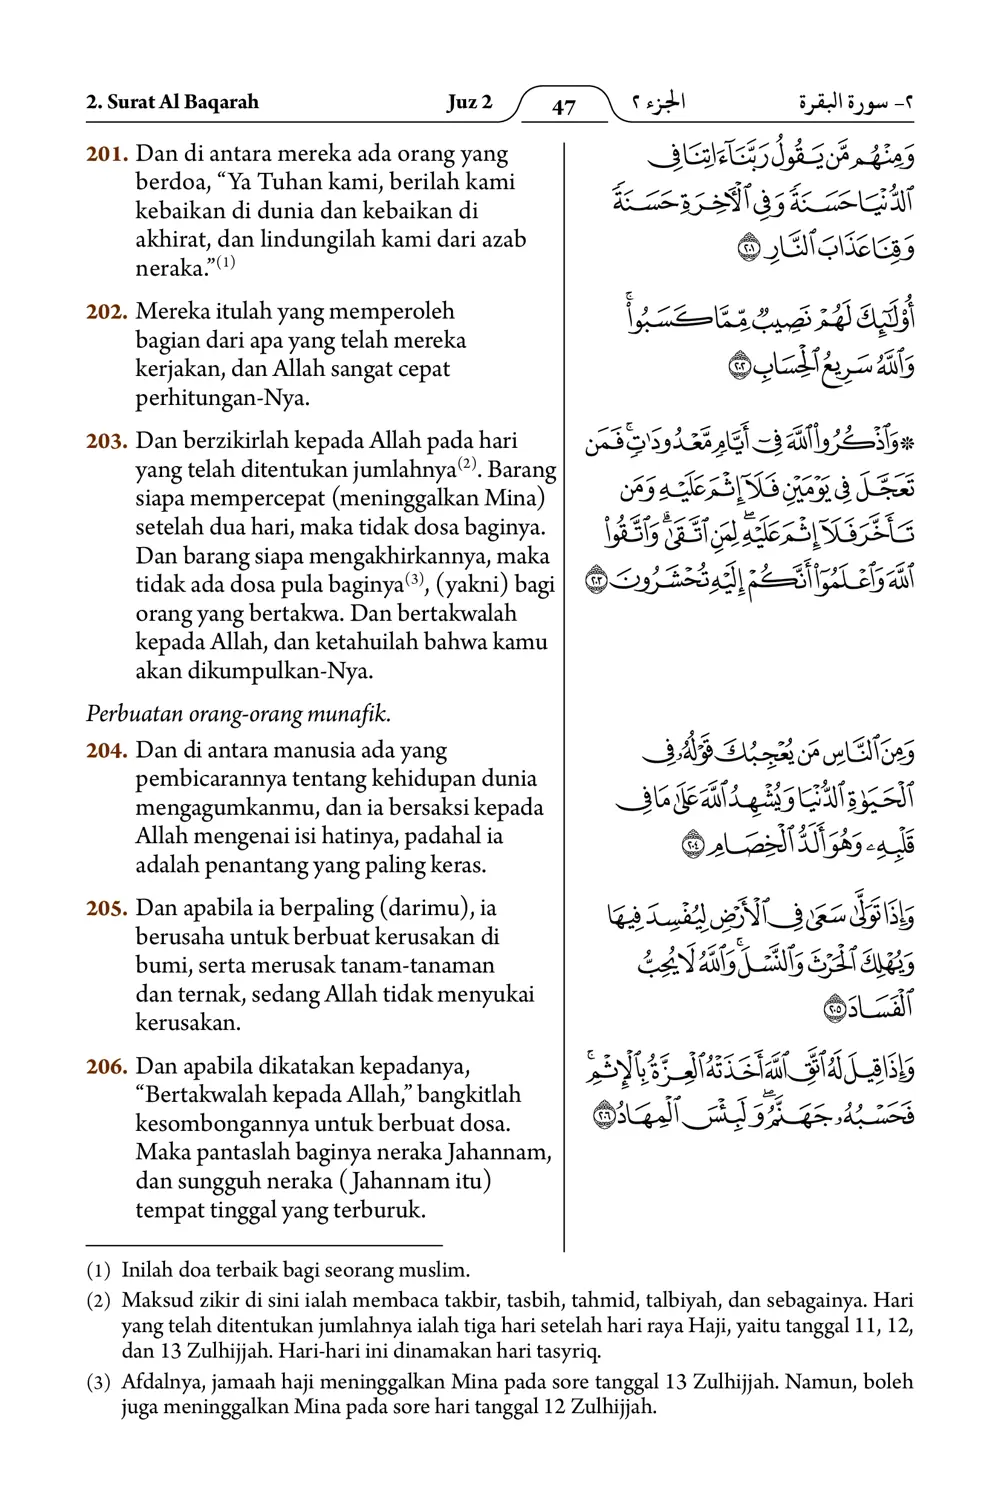 2. Surat Al Baqarah Juz 2 47 الجزء ٢ ٢- سورة البقرة
201. Dan di antara mereka ada orang yang
berdoa, “Ya Tuhan kami, berilah kami
kebaikan di dunia dan kebaikan di
akhirat, dan lindungilah kami dari azab
neraka.”(1)
وَمِنْهُم مَّن يَقُولُ رَبَّنَآ ءَاتِنَا فِى
ٱلدُّنْيَا حَسَنَةً وَفِى ٱلْءَاخِرَةِ حَسَنَةً
وَقِنَا عَذَابَ ٱلنَّارِ ٢٠١
202. Mereka itulah yang memperoleh
bagian dari apa yang telah mereka
kerjakan, dan Allah sangat cepat
perhitungan-Nya.
أُو۟لَٰٓئِكَ لَهُمْ نَصِيبٌ مِّمَّا كَسَبُوا۟ ۚ
وَٱللَّهُ سَرِيعُ ٱلْحِسَابِ ٢٠٢
203. Dan berzikirlah kepada Allah pada hari
yang telah ditentukan jumlahnya(2). Barang
siapa mempercepat (meninggalkan Mina)
setelah dua hari, maka tidak dosa baginya.
Dan barang siapa mengakhirkannya, maka
tidak ada dosa pula baginya(3), (yakni) bagi
orang yang bertakwa. Dan bertakwalah
kepada Allah, dan ketahuilah bahwa kamu
akan dikumpulkan-Nya.
۞ وَٱذْكُرُوا۟ ٱللَّهَ فِىٓ أَيَّامٍ مَّعْدُودَٰتٍ ۚ فَمَن
تَعَجَّلَ فِى يَوْمَيْنِ فَلَآ إِثْمَ عَلَيْهِ وَمَن
تَأَخَّرَ فَلَآ إِثْمَ عَلَيْهِ ۖ لِمَنِ ٱتَّقَىٰ ۗ وَٱتَّقُوا۟
ٱللَّهَ وَٱعْلَمُوٓا۟ أَنَّكُمْ إِلَيْهِ تُحْشَرُونَ ٢٠٣
Perbuatan orang-orang munafik.
204. Dan di antara manusia ada yang
pembicarannya tentang kehidupan dunia
mengagumkanmu, dan ia bersaksi kepada
Allah mengenai isi hatinya, padahal ia
adalah penantang yang paling keras.
وَمِنَ ٱلنَّاسِ مَن يُعْجِبُكَ قَوْلُهُۥ فِى
ٱلْحَيَوٰةِ ٱلدُّنْيَا وَيُشْهِدُ ٱللَّهَ عَلَىٰ مَا فِى
قَلْبِهِۦ وَهُوَ أَلَدُّ ٱلْخِصَامِ ٢٠٤
205. Dan apabila ia berpaling (darimu), ia
berusaha untuk berbuat kerusakan di
bumi, serta merusak tanam-tanaman
dan ternak, sedang Allah tidak menyukai
kerusakan.
وَإِذَا تَوَلَّىٰ سَعَىٰ فِى ٱلْأَرْضِ لِيُفْسِدَ فِيهَا
وَيُهْلِكَ ٱلْحَرْثَ وَٱلنَّسْلَ ۚ وَٱللَّهُ لَا يُحِبُّ
ٱلْفَسَادَ ٢٠٥
206. Dan apabila dikatakan kepadanya,
“Bertakwalah kepada Allah,” bangkitlah
kesombongannya untuk berbuat dosa.
Maka pantaslah baginya neraka Jahannam,
dan sungguh neraka (Jahannam itu)
tempat tinggal yang terburuk.
وَإِذَا قِيلَ لَهُ ٱتَّقِ ٱللَّهَ أَخَذَتْهُ ٱلْعِزَّةُ بِٱلْإِثْمِ ۚ
فَحَسْبُهُۥ جَهَنَّمُ ۖ وَلَبِئْسَ ٱلْمِهَادُ ٢٠٦
(1) Inilah doa terbaik bagi seorang muslim.
(2) Maksud zikir di sini ialah membaca takbir, tasbih, tahmid, talbiyah, dan sebagainya. Hari
yang telah ditentukan jumlahnya ialah tiga hari setelah hari raya Haji, yaitu tanggal 11, 12,
dan 13 Zulhijjah. Hari-hari ini dinamakan hari tasyriq.
(3) Afdalnya, jamaah haji meninggalkan Mina pada sore tanggal 13 Zulhijjah. Namun, boleh
juga meninggalkan Mina pada sore hari tanggal 12 Zulhijjah.